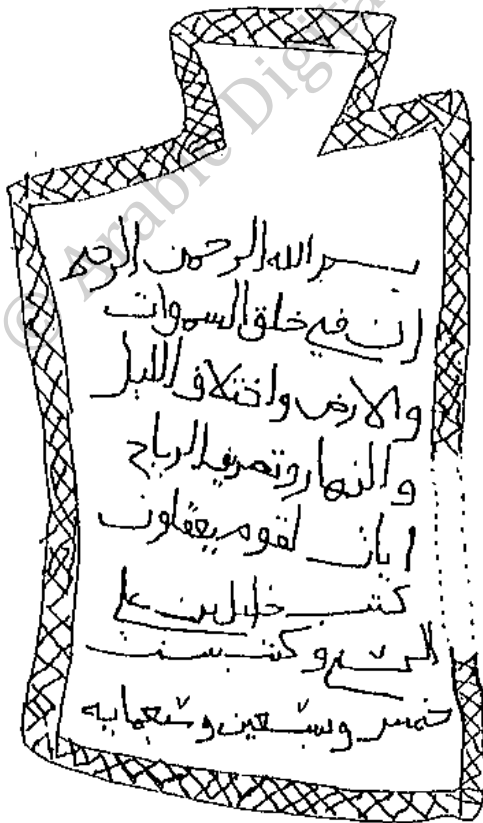 © Arabic Digita
بسم الله الرحمن الرحيم
ان في خلق السموات
والارض واختلاف الليل
والنهار وتصريف الرياح
ايات لقوم يعقلون
كتب خليل بن علي
وكتب سنت
خمس